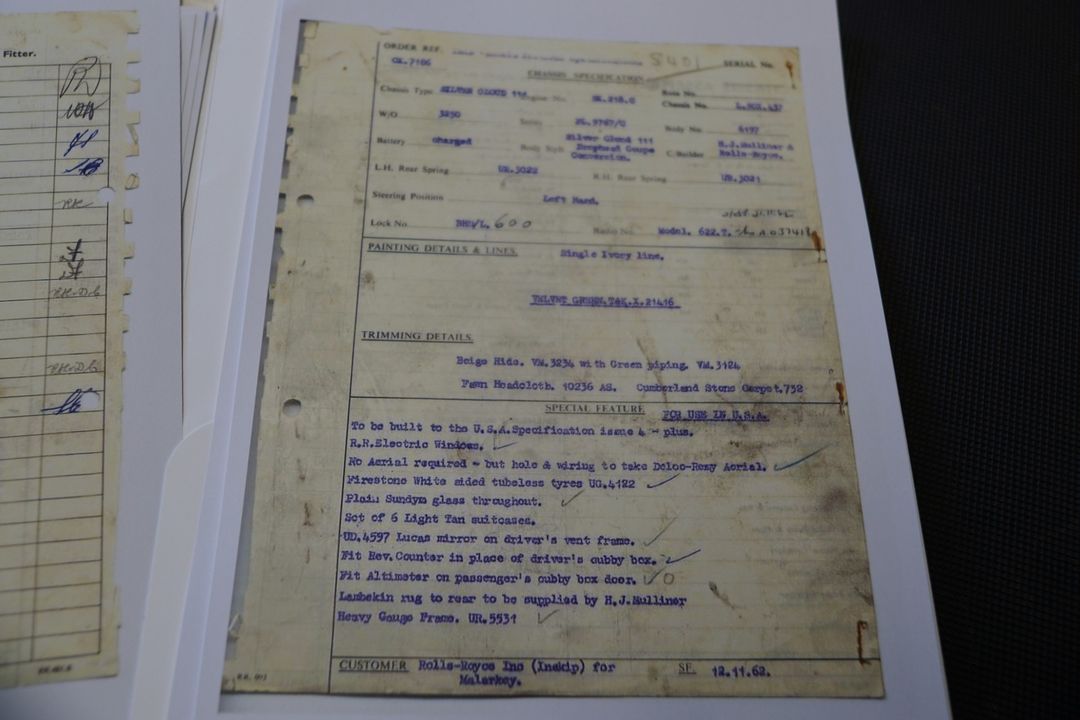 Fitter.
ORDER REF.
OX.7186
8401
SERIAL No.
CHASSIS SPECIFICATION
Chassis Type SILVER CLOUD 111 Engine No. SK.218.C
Chassis No. L.SCX.437
W/O 3250
Body No. 6197
Battery charged
Body Style Silver Cloud 111
Drophead Coupe
Conversion.
C/Builder H.J.Mulliner &
Rolls-Royce.
L.H. Rear Spring UR.3022 R.H. Rear Spring UR.3021
Steering Position Left Hand.
Lock No. 600
Radio No. Model. 622.T.
PAINTING DETAILS & LINES.
Single Ivory line.
VELVET GREEN.
TRIMMING DETAILS.
Beige Hide. VM.3234 with Green piping. VM.3124
Fawn Headcloth. 10236 AS. Cumberland Stone Carpet.752
SPECIAL FEATURE FOR USE IN U.S.A.
To be built to the U.S.A.Specification issue 4 - plus.
R.R.Electric Windows.
No Aerial required - but hole & wiring to take Delco-Remy Aerial.
Firestone White sided tubeless tyres UG.4122
Plain Sundym glass throughout.
Set of 6 Light Tan suitcases.
UD.4597 Lucas mirror on driver's vent frame.
Fit Rev.Counter in place of driver's cubby box.
Fit Altimeter on passenger's cubby box door.
Lambskin rug to rear to be supplied by H.J.Mulliner
Heavy Gauge Frame. UR.5531
CUSTOMER Rolls-Royce Inc (Inskip) for
Malarkey.
12.11.62.